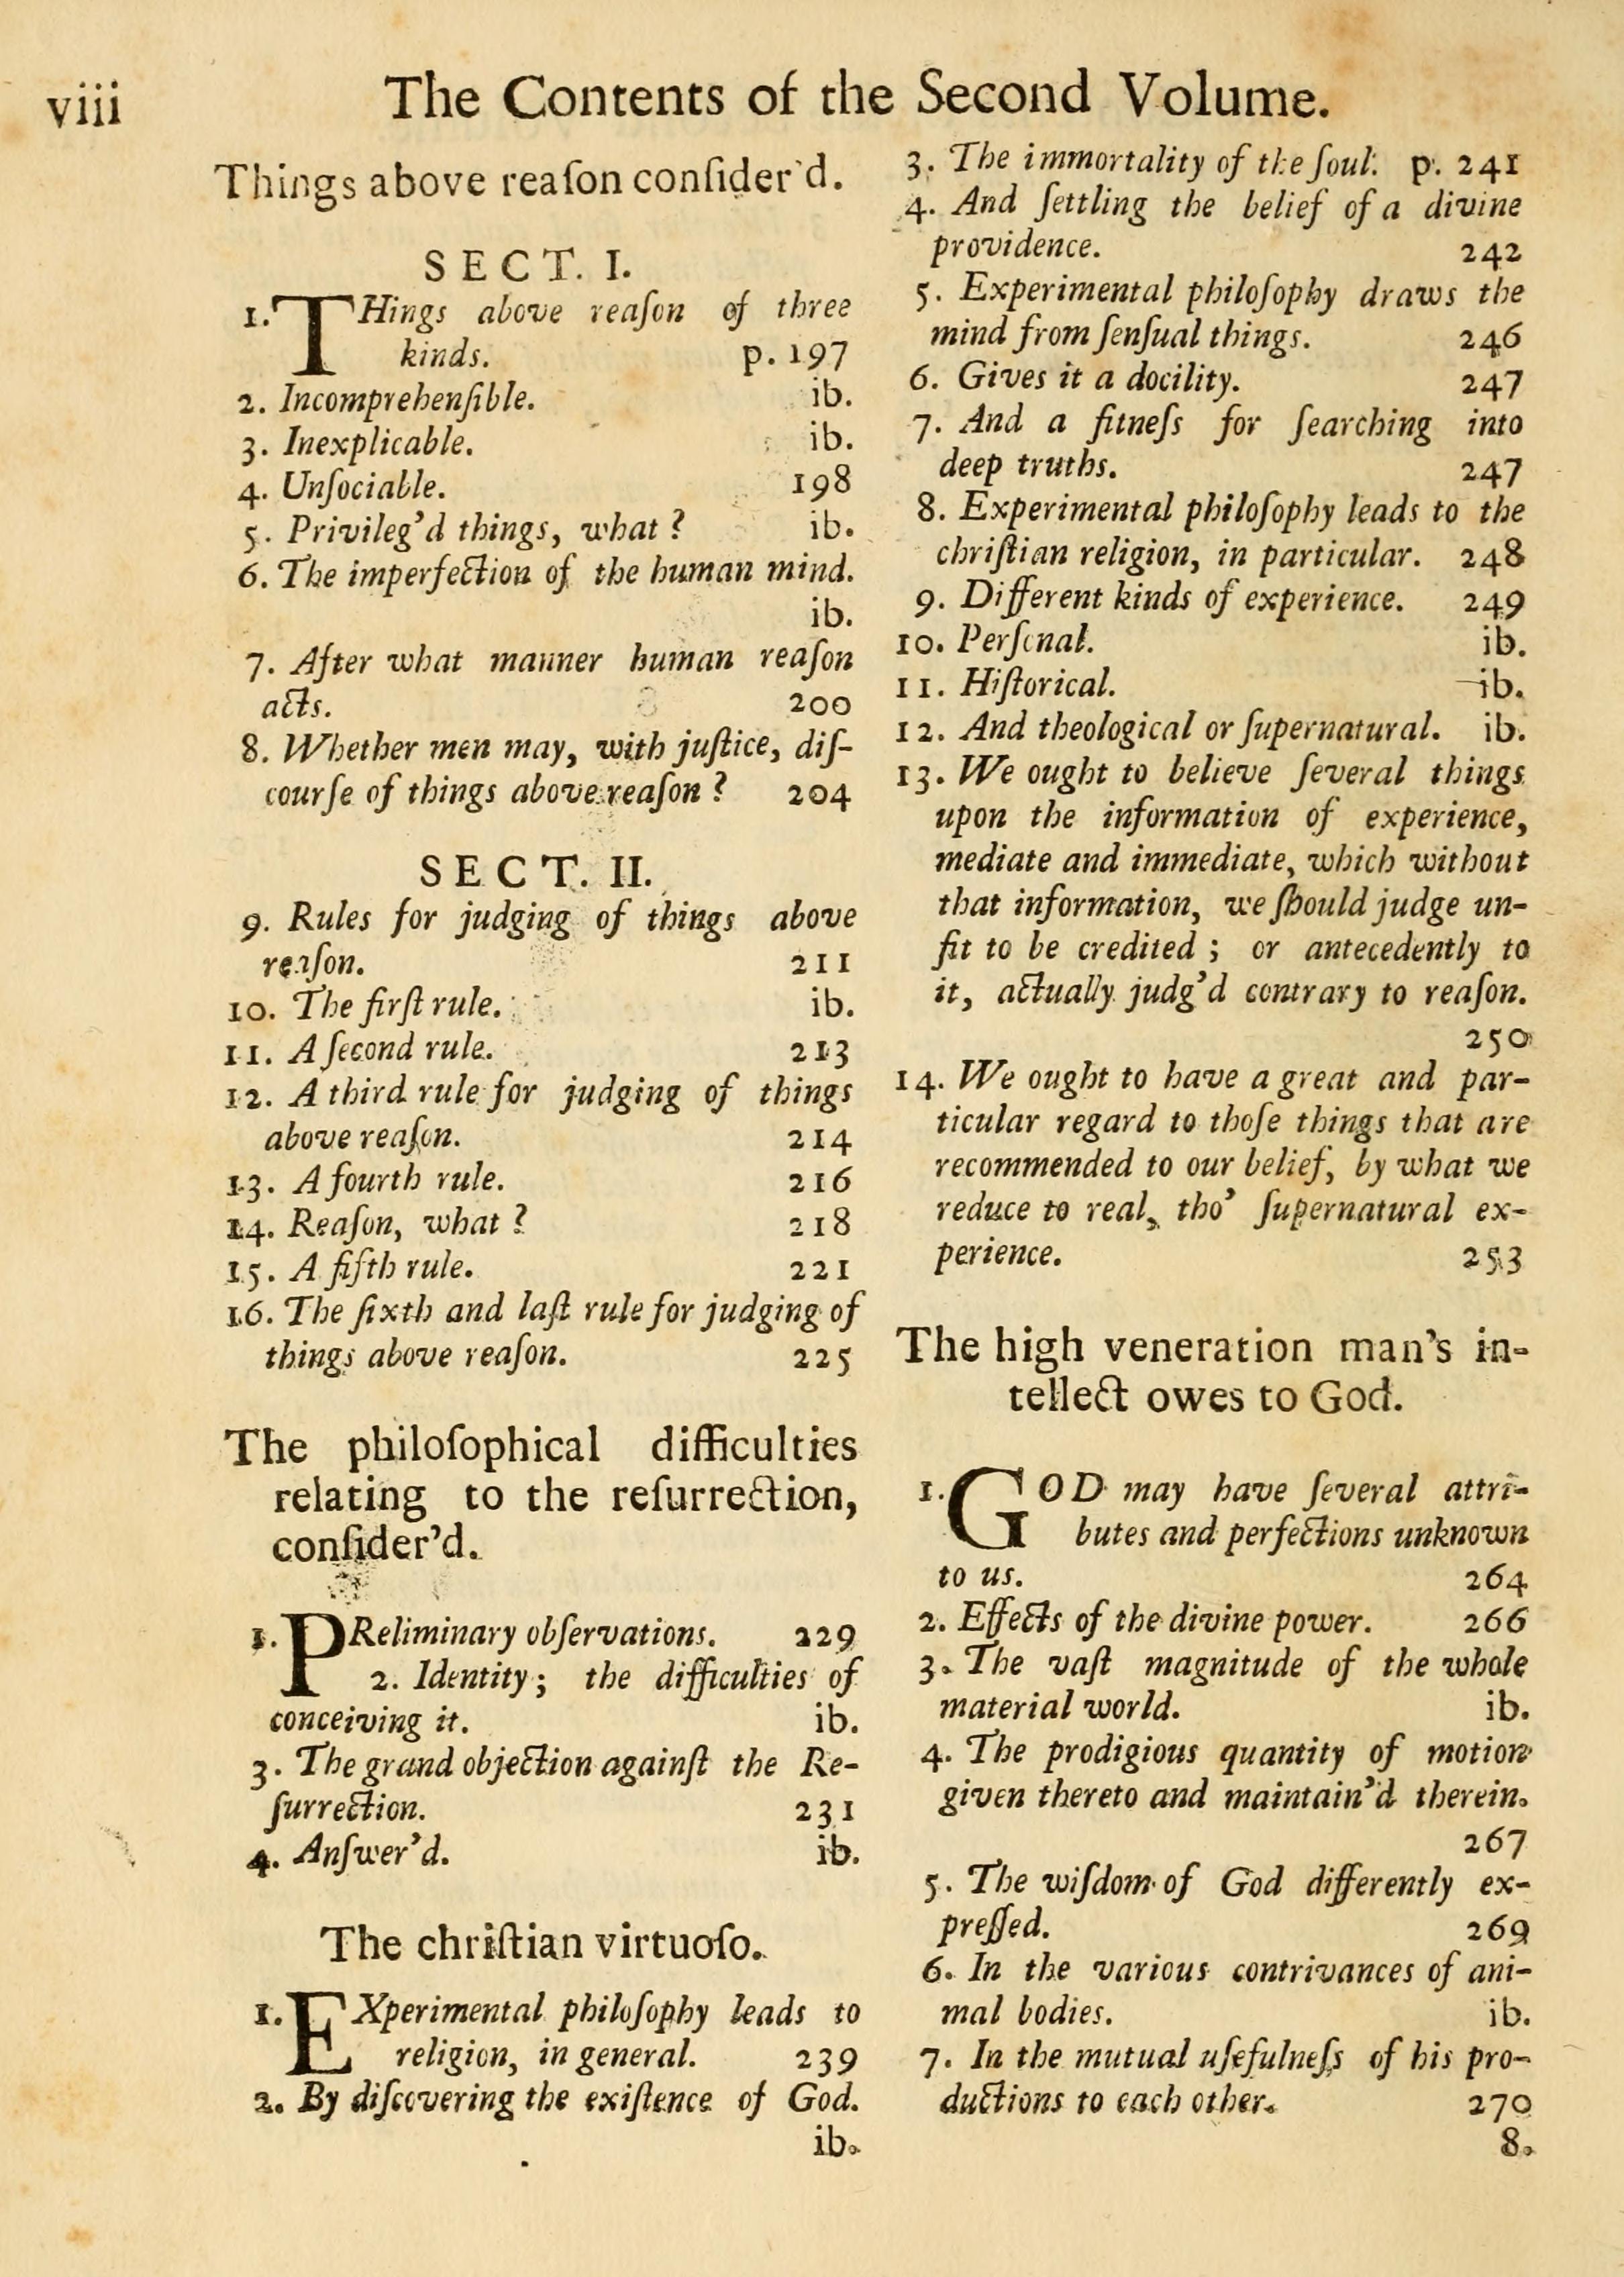 viii
The Contents of the Second Volume.
Things above reaſon conſider'd.
SECT. I.
1. THings above reaſon of three
kinds. p. 197
2. Incomprehenſible. ib.
3. Inexplicable. ib.
4. Unſociable. 198
5. Privileg'd things, what ? ib.
6. The imperfection of the human mind.
ib.
7. After what manner human reaſon
acts. 200
8. Whether men may, with juſtice, diſ-
courſe of things above reaſon ? 204
SECT. II.
9. Rules for judging of things above
reaſon. 211
10. The firſt rule. ib.
11. A ſecond rule. 213
12. A third rule for judging of things
above reaſon. 214
13. A fourth rule. 216
14. Reaſon, what ? 218
15. A fifth rule. 221
16. The ſixth and laſt rule for judging of
things above reaſon. 225
The philoſophical difficulties
relating to the reſurrection,
conſider'd.
1. PReliminary obſervations. 229
2. Identity ; the difficulties of
conceiving it. ib.
3. The grand objection againſt the Re-
ſurrection. 231
4. Anſwer'd. ib.
The chriſtian virtuoſo.
1. EXperimental philoſophy leads to
religion, in general. 239
2. By diſcovering the exiſtence of God.
ib.
3. The immortality of the ſoul. p. 241
4. And ſettling the belief of a divine
providence. 242
5. Experimental philoſophy draws the
mind from ſenſual things. 246
6. Gives it a docility. 247
7. And a fitneſs for ſearching into
deep truths. 247
8. Experimental philoſophy leads to the
chriſtian religion, in particular. 248
9. Different kinds of experience. 249
10. Perſonal. ib.
11. Hiſtorical. ib.
12. And theological or ſupernatural. ib.
13. We ought to believe ſeveral things
upon the information of experience,
mediate and immediate, which without
that information, we ſhould judge un-
fit to be credited ; or antecedently to
it, actually judg'd contrary to reaſon.
250
14. We ought to have a great and par-
ticular regard to thoſe things that are
recommended to our belief, by what we
reduce to real, tho' ſupernatural ex-
perience. 253
The high veneration man's in-
tellect owes to God.
1. GOD may have ſeveral attri-
butes and perfections unknown
to us. 264
2. Effects of the divine power. 266
3. The vaſt magnitude of the whole
material world. ib.
4. The prodigious quantity of motion
given thereto and maintain'd therein.
267
5. The wiſdom of God differently ex-
preſſed. 269
6. In the various contrivances of ani-
mal bodies. ib.
7. In the mutual uſefulneſs of his pro-
ductions to each other. 270
8.